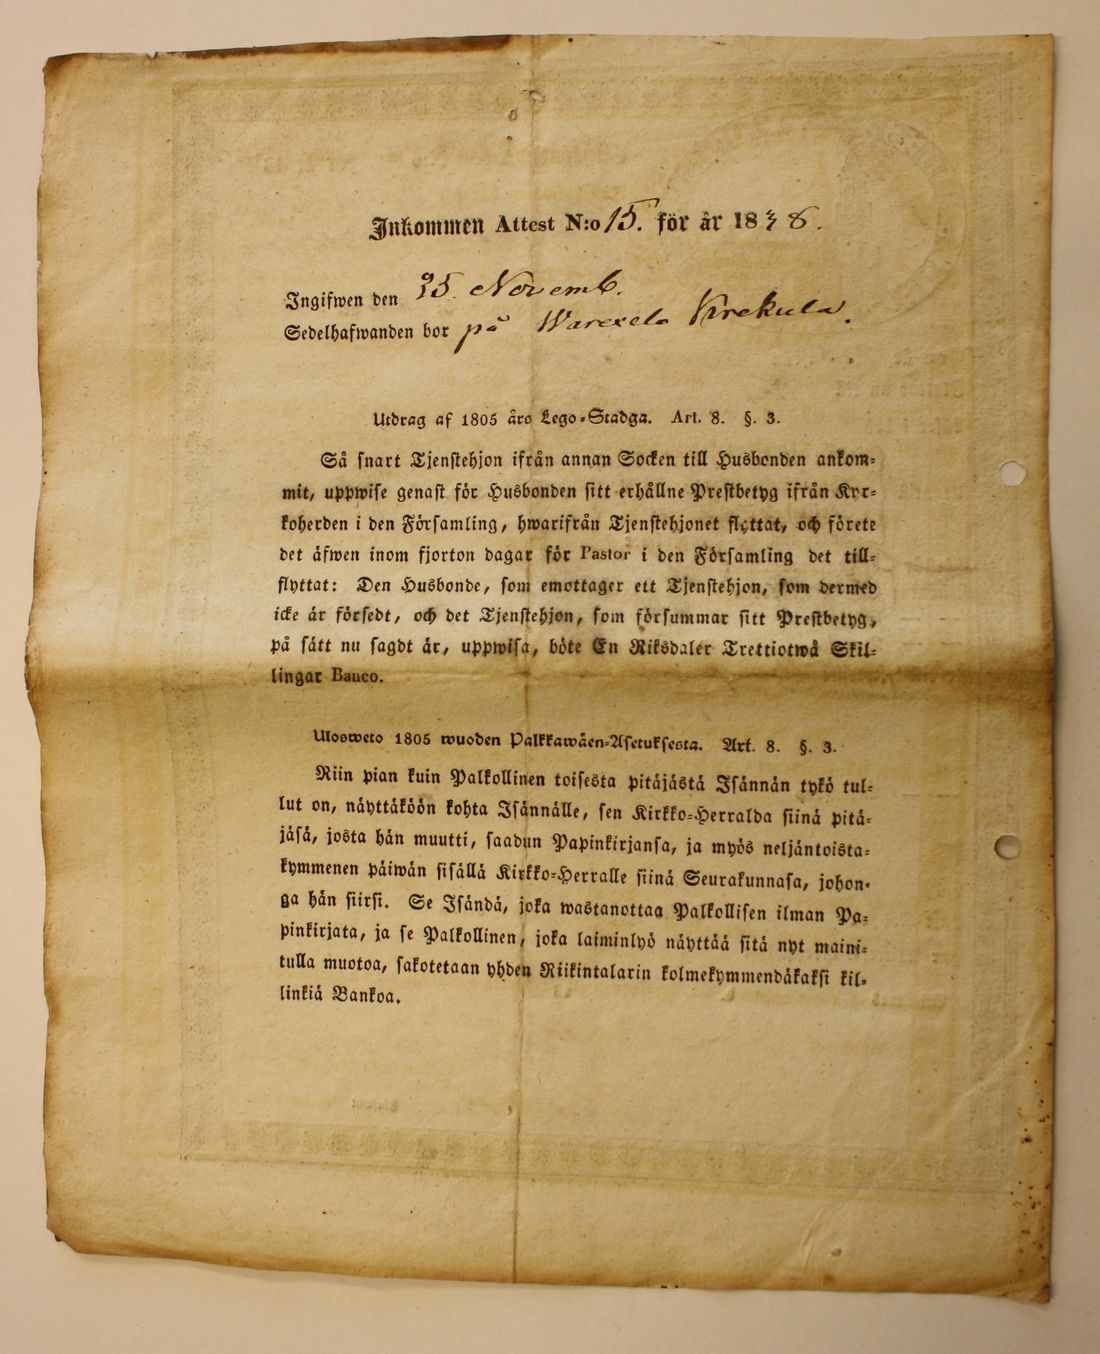 Inkommen Attest N:o 15. för år 1838.
Ingifwen den 25. Novemb.
Sedelhafwanden bor på Warexela Krekula.
Utdrag af 1805 års Lego-Stadga. Art. 8. §. 3.
Så snart Tjenstehjon ifrån annan Socken till Husbonden ankom-
mit, uppwise genast för Husbonden sitt erhållne Prestbetyg ifrån Kyr-
koherden i den Församling, hwarifrån Tjenstehjonet flyttat, och förete
det äfwen inom fjorton dagar för Pastor i den Församling det till-
flyttat: Den Husbonde, som emottager ett Tjenstehjon, som dermed
icke är försedt, och det Tjenstehjon, som försummar sitt Prestbetyg,
på sätt nu sagdt är, uppwisa, böte En Riksdaler Trettiotwå Skil-
lingar Banco.
Ulosweto 1805 wuoden Palkkawäen-Asetuksesta. Art. 8. §. 3.
Niin pian kuin Palkollinen toisesta pitäjästä Isännän tykö tul-
lut on, näyttäköön kohta Isännälle, sen Kirkko-Herralda siinä pitä-
jäsä, josta hän muutti, saadun Papinkirjansa, ja myös neljäntoista-
kymmenen päiwän sisällä Kirkko-Herralle siinä Seurakunnasa, johon-
ga hän siirsi. Se Isändä, joka wastanottaa Palkollisen ilman Pa-
pinkirjata, ja se Palkollinen, joka laiminlyö näyttää sitä nyt maini-
tulla muotoa, sakotetaan yhden Riikintalarin kolmekymmendäkaksi kil-
linkiä Bankoa.